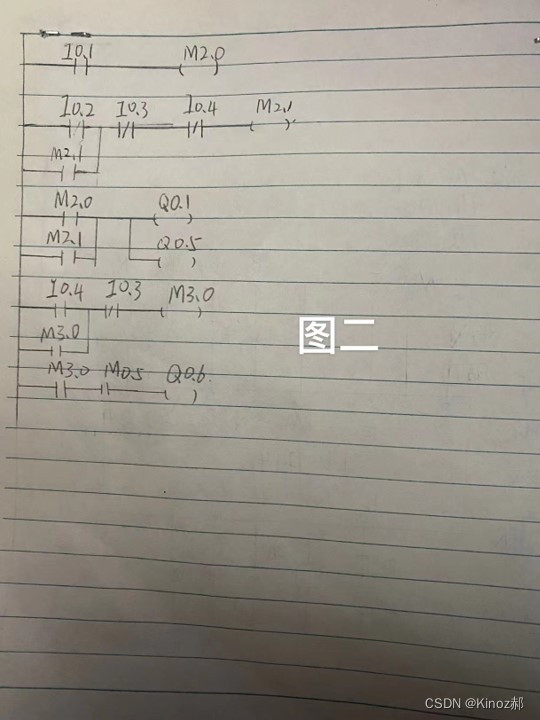 I0.1 M2.0
I0.2 I0.3 I0.4 M2.1
M2.1
M2.0 Q0.1
M2.1 Q0.5
I0.4 I0.3 M3.0
M3.0
M3.0 M0.5 Q0.6
图二
CSDN @Kinoz郝